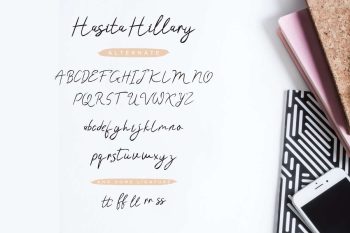 Hasita Hillary
ALTERNATE
ABCDEFGHIJKLMNO
PQRSTUVWXYZ
abcdefghijklmno
pqrstuvwxyz
AND SOME LIGATURE
tt ff ll rr ss